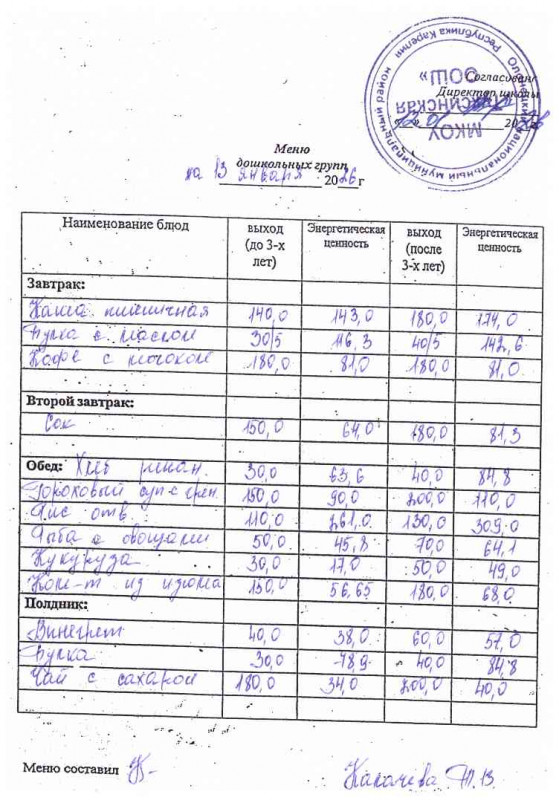 Согласовано
Директор школы
Республика Карелия
Олонецкий национальный муниципальный район
МКОУ
ООШ»
Меню
дошкольных групп
на 13 января 2026 г
Наименование блюд выход (до 3-х лет) Энергетическая ценность выход (после 3-х лет) Энергетическая ценность
Завтрак:
Каша пшеничная 140,0 143,0 180,0 174,0
Булка с маслом 30/5 116,3 40/5 142,6
Кофе с молоком 180,0 81,0 180,0 81,0
Второй завтрак:
Сок 150,0 64,0 180,0 81,3
Обед: Хлеб ржан. 30,0 63,6 40,0 84,8
Гороховый суп с грен. 150,0 90,0 200,0 110,0
Рис отв. 110,0 261,0 130,0 309,0
Рыба с овощами 50,0 45,8 70,0 64,1
Кукуруза 30,0 17,0 50,0 49,0
Ком-т из изюма 150,0 56,65 180,0 68,0
Полдник:
Винегрет 40,0 38,0 60,0 57,0
Булка 30,0 78,9 40,0 84,8
Чай с сахаром 180,0 34,0 200,0 40,0
Меню составил